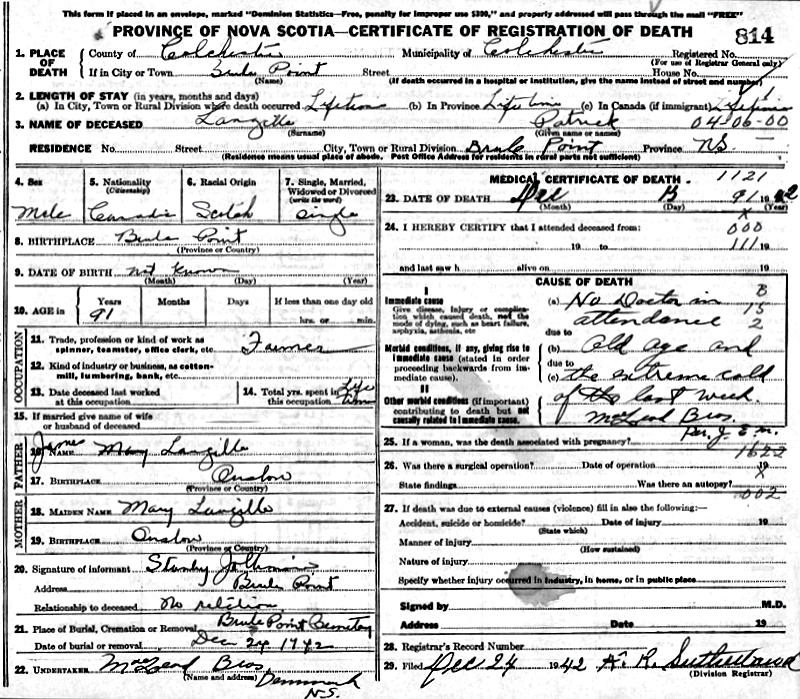 This form if placed in an envelope, marked "Dominion Statistics—Free, penalty for improper use $300," and properly addressed will pass through the mail "FREE"
PROVINCE OF NOVA SCOTIA—CERTIFICATE OF REGISTRATION OF DEATH 814
1. PLACE OF DEATH County of Colchester Municipality of Colchester Registered No.
(For use of Registrar General only)
If in City or Town Brule Point Street House No.
(Name) (If death occurred in a hospital or institution, give the name instead of street and number)
2. LENGTH OF STAY (in years, months and days)
(a) In City, Town or Rural Division where death occurred Lifetime (b) In Province Lifetime (c) In Canada (if immigrant) Lifetime
3. NAME OF DECEASED Langille Patrick 04-06-00
(Surname) (Given name or names)
RESIDENCE No. Street City, Town or Rural Division Brule Point Province NS.
(Residence means usual place of abode. Post Office Address for residents in rural parts not sufficient)
4. Sex 5. Nationality (Citizenship) 6. Racial Origin 7. Single, Married, Widowed or Divorced (write the word)
Male Canadian Scotch Single
8. BIRTHPLACE Brule Point
(Province or Country)
9. DATE OF BIRTH not known
(Month) (Day) (Year)
10. AGE in Years Months Days If less than one day old
91 hrs. or min.
OCCUPATION
11. Trade, profession or kind of work as spinner, teamster, office clerk, etc. Farmer
12. Kind of industry or business, as cotton-mill, lumbering, bank, etc.
13. Date deceased last worked at this occupation 14. Total yrs. spent in this occupation Life time
15. If married give name of wife or husband of deceased
FATHER
16. NAME James Mary Langille
17. BIRTHPLACE Onslow
(Province or Country)
MOTHER
18. MAIDEN NAME Mary Langille
19. BIRTHPLACE Onslow
(Province or Country)
20. Signature of informant Stanley
Address Brule Point
Relationship to deceased No relation
21. Place of Burial, Cremation or Removal Brule Point Cemetery
Date of burial or removal Dec 24 1942
22. UNDERTAKER MacLeod Bros.
(Name and address) Denmark
N.S.
MEDICAL CERTIFICATE OF DEATH 1121
23. DATE OF DEATH Dec 91 19
(Month) (Day) (Year)
x
24. I HEREBY CERTIFY that I attended deceased from: 000
19 to 111 19
and last saw h alive on 19
CAUSE OF DEATH
I
Immediate cause
Give disease, injury or complication which caused death, not the mode of dying, such as heart failure, asphyxia, asthenia, etc
(a) No Doctor in B
attendance 15
due to 2
Morbid conditions, if any, giving rise to immediate cause (stated in order proceeding backwards from immediate cause).
(b) old age and
due to
(c) the extreme cold
II
Other morbid conditions (if important) contributing to death but not causally related to immediate cause.
of the last week.
MacLeod Bros.
Per. J. E. M.
25. If a woman, was the death associated with pregnancy?
1622
26. Was there a surgical operation? Date of operation 19
x
State findings Was there an autopsy?
002
27. If death was due to external causes (violence) fill in also the following:—
Accident, suicide or homicide? Date of injury 19
(State which)
Manner of injury
(How sustained)
Nature of injury
Specify whether injury occurred in industry, in home, or in public place
Signed by M.D.
Address Date 19
28. Registrar's Record Number
29. Filed Dec 24 1942 A. R. Sutherland
(Division Registrar)